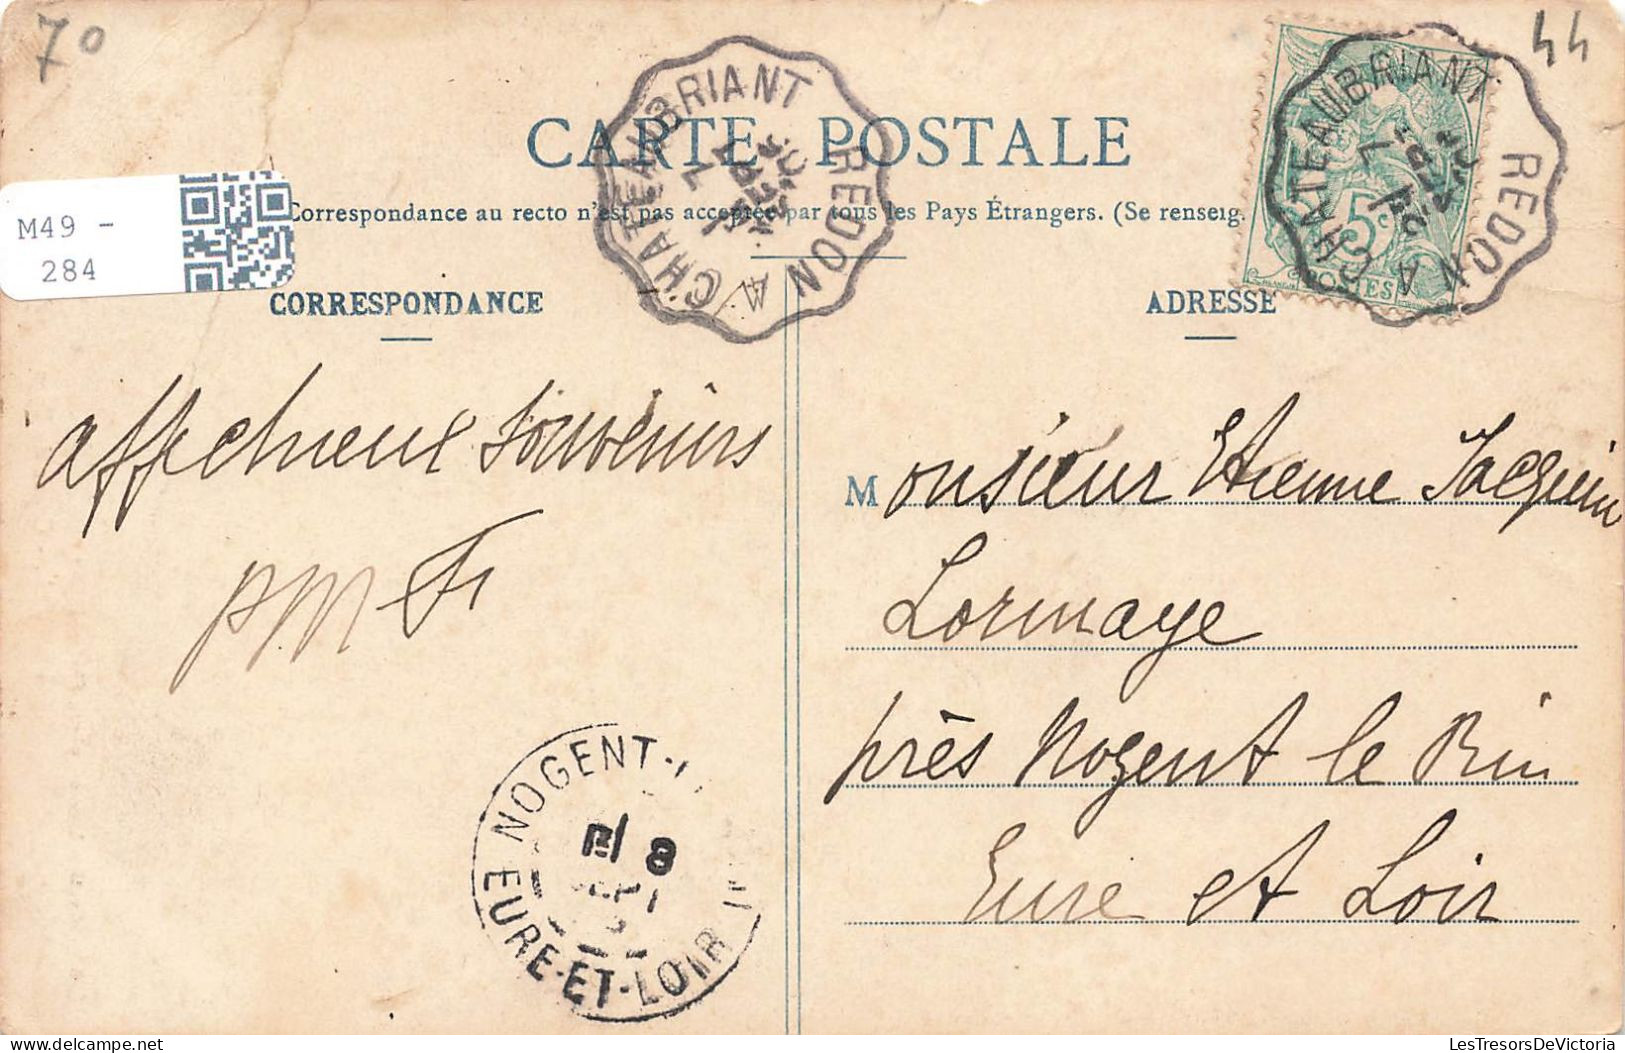 70
44
CARTE POSTALE
Correspondance au recto n'est pas acceptée par tous les Pays Étrangers. (Se renseig
M49 -
284
CORRESPONDANCE
ADRESSE
CHATEAUBRIANT A REDON
7
SEPT
CHATEAUBRIANT A REDON
7
5c
POSTES
affectueux souvenirs
Monsieur Etienne Jacquin
Lormaye
près Nogent le Roi
Eure et Loir
NOGENT-
8
EURE-ET-LOIR
LesTresorsDeVictoria